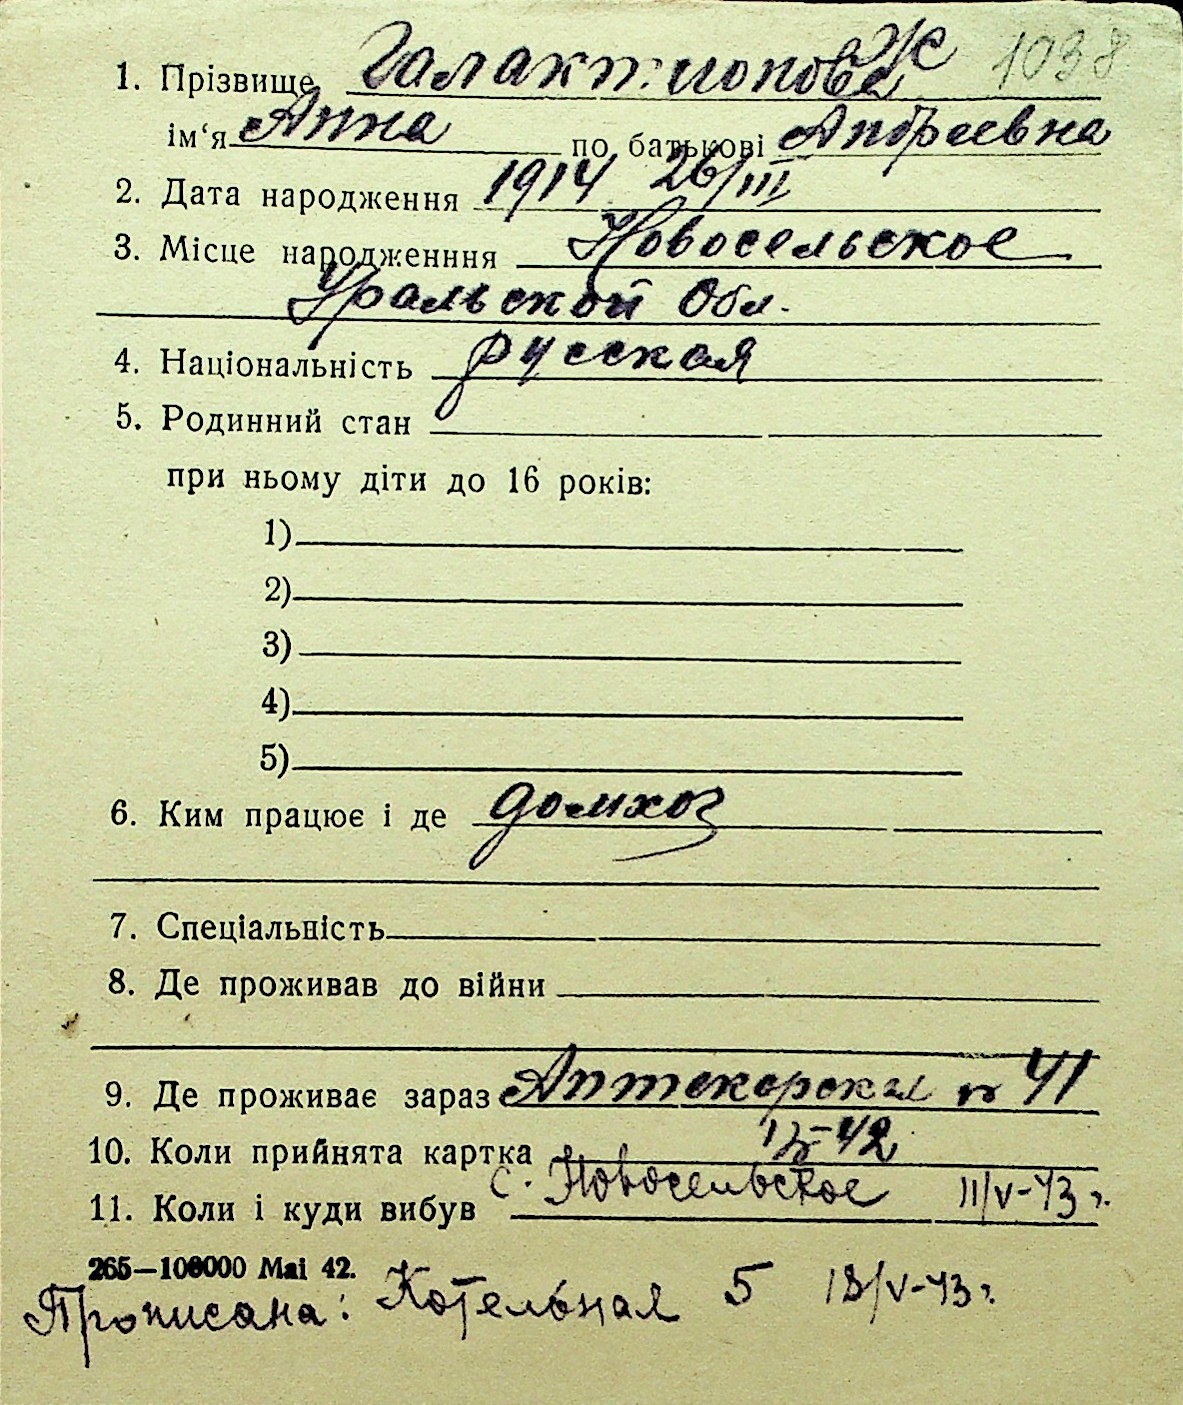 Ж 1038
1. Прізвище Галактионова
ім‘я Анна по батькові Андреевна
2. Дата народження 1914 26/III
3. Місце народженння Новосельское
Уральской Обл.
4. Національність русская
5. Родинний стан
при ньому діти до 16 років:
1)
2)
3)
4)
5)
6. Ким працює і де домхоз
7. Спеціальність
8. Де проживав до війни
9. Де проживає зараз Аптекарская n 41
10. Коли прийнята картка -42
11. Коли і куди вибув с. Новосельское 11/V-43 г.
265—100000 Маі 42.
Прописана: Котельная 5 13/V-43 г.